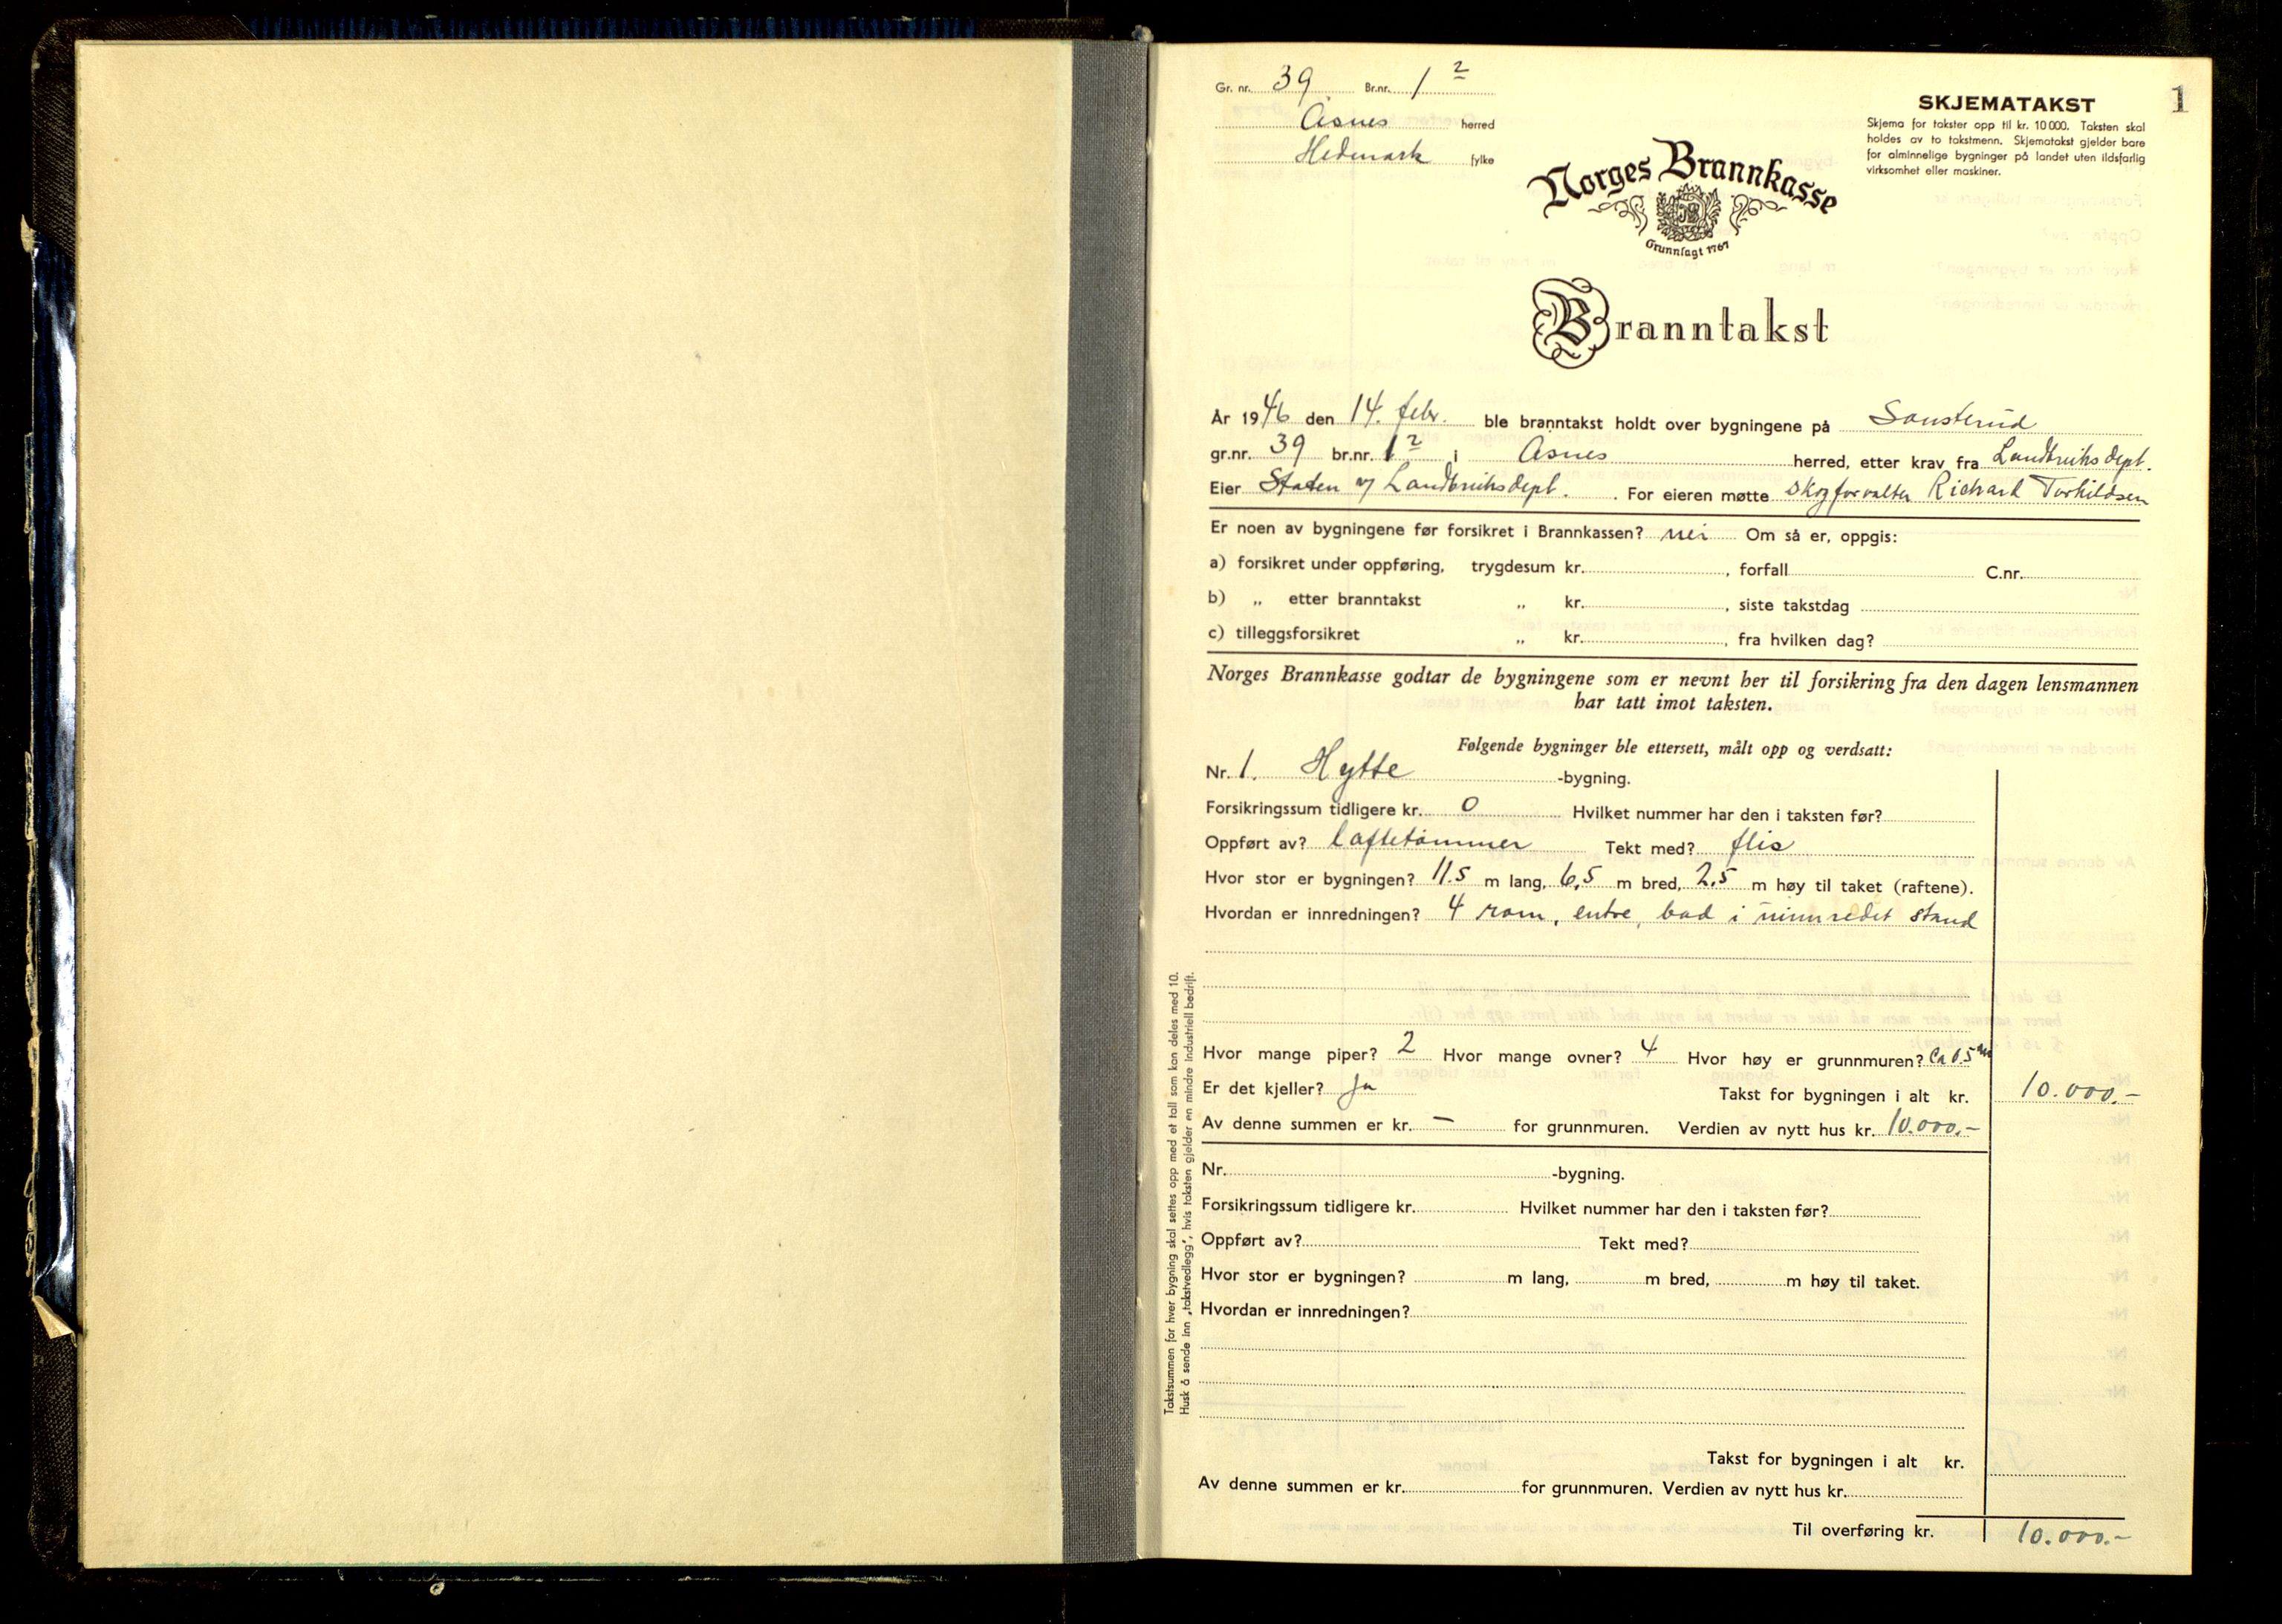 1
Gr. nr. 39 Br.nr. 1 2
Åsnes herred
Hedmark fylke
SKJEMATAKST
Skjema for takster opp til kr. 10 000. Taksten skal
holdes av to takstmenn. Skjematakst gjelder bare
for alminnelige bygninger på landet uten ildsfarlig
virksomhet eller maskiner.
Norges Brannkasse
Grunnlagt 1767
Branntakst
År 1946 den 14. febr. ble branntakst holdt over bygningene på Sønsterud
gr.nr. 39 br.nr. 1 2 i Åsnes herred, etter krav fra Landbruksdept.
Eier Staten v/ Landbruksdept. For eieren møtte skogforvalter Richard Torkildsen
Er noen av bygningene før forsikret i Brannkassen? nei Om så er, oppgis:
a) forsikret under oppføring, trygdesum kr. , forfall C.nr.
b) „ etter branntakst „ kr. , siste takstdag
c) tilleggsforsikret „ kr. , fra hvilken dag?
Norges Brannkasse godtar de bygningene som er nevnt her til forsikring fra den dagen lensmannen
har tatt imot taksten.
Følgende bygninger ble ettersett, målt opp og verdsatt:
Nr. 1. Hytte -bygning.
Forsikringssum tidligere kr. 0 Hvilket nummer har den i taksten før?
Oppført av? laftetømmer Tekt med? flis
Hvor stor er bygningen? 11.5 m lang, 6,5 m bred, 2,5 m høy til taket (raftene).
Hvordan er innredningen? 4 rom, entre, bad i uinnredet stand
Hvor mange piper? 2 Hvor mange ovner? 4 Hvor høy er grunnmuren? Ca 0.5 m
Er det kjeller? Ja Takst for bygningen i alt kr. 10.000.-
Av denne summen er kr. — for grunnmuren. Verdien av nytt hus kr. 10.000.-
Nr. -bygning.
Forsikringssum tidligere kr. Hvilket nummer har den i taksten før?
Oppført av? Tekt med?
Hvor stor er bygningen? m lang, m bred, m høy til taket.
Hvordan er innredningen?
Takst for bygningen i alt kr.
Av denne summen er kr. for grunnmuren. Verdien av nytt hus kr.
Til overføring kr. 10.000.-
Takstsummen for hver bygning skal settes opp med et tall som kan deles med 10.
Husk å sende inn „takstvedlegg“, hvis taksten gjelder en mindre industriell bedrift.